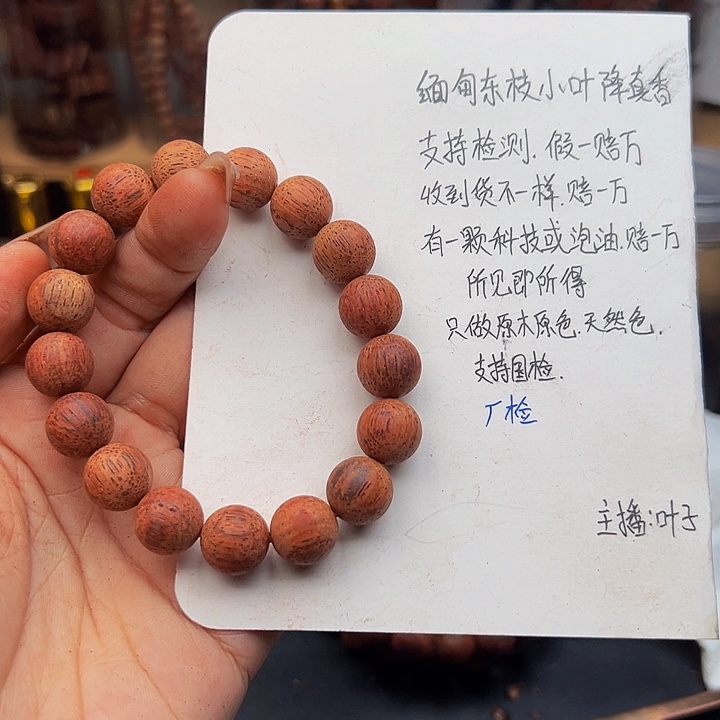 缅甸东枝小叶降真香
支持检测.假一赔万
收到货不一样.赔一万
有一颗科技或泡油.赔一万
所见即所得
只做原木原色.天然色.
支持国检.
厂检
主播:叶子